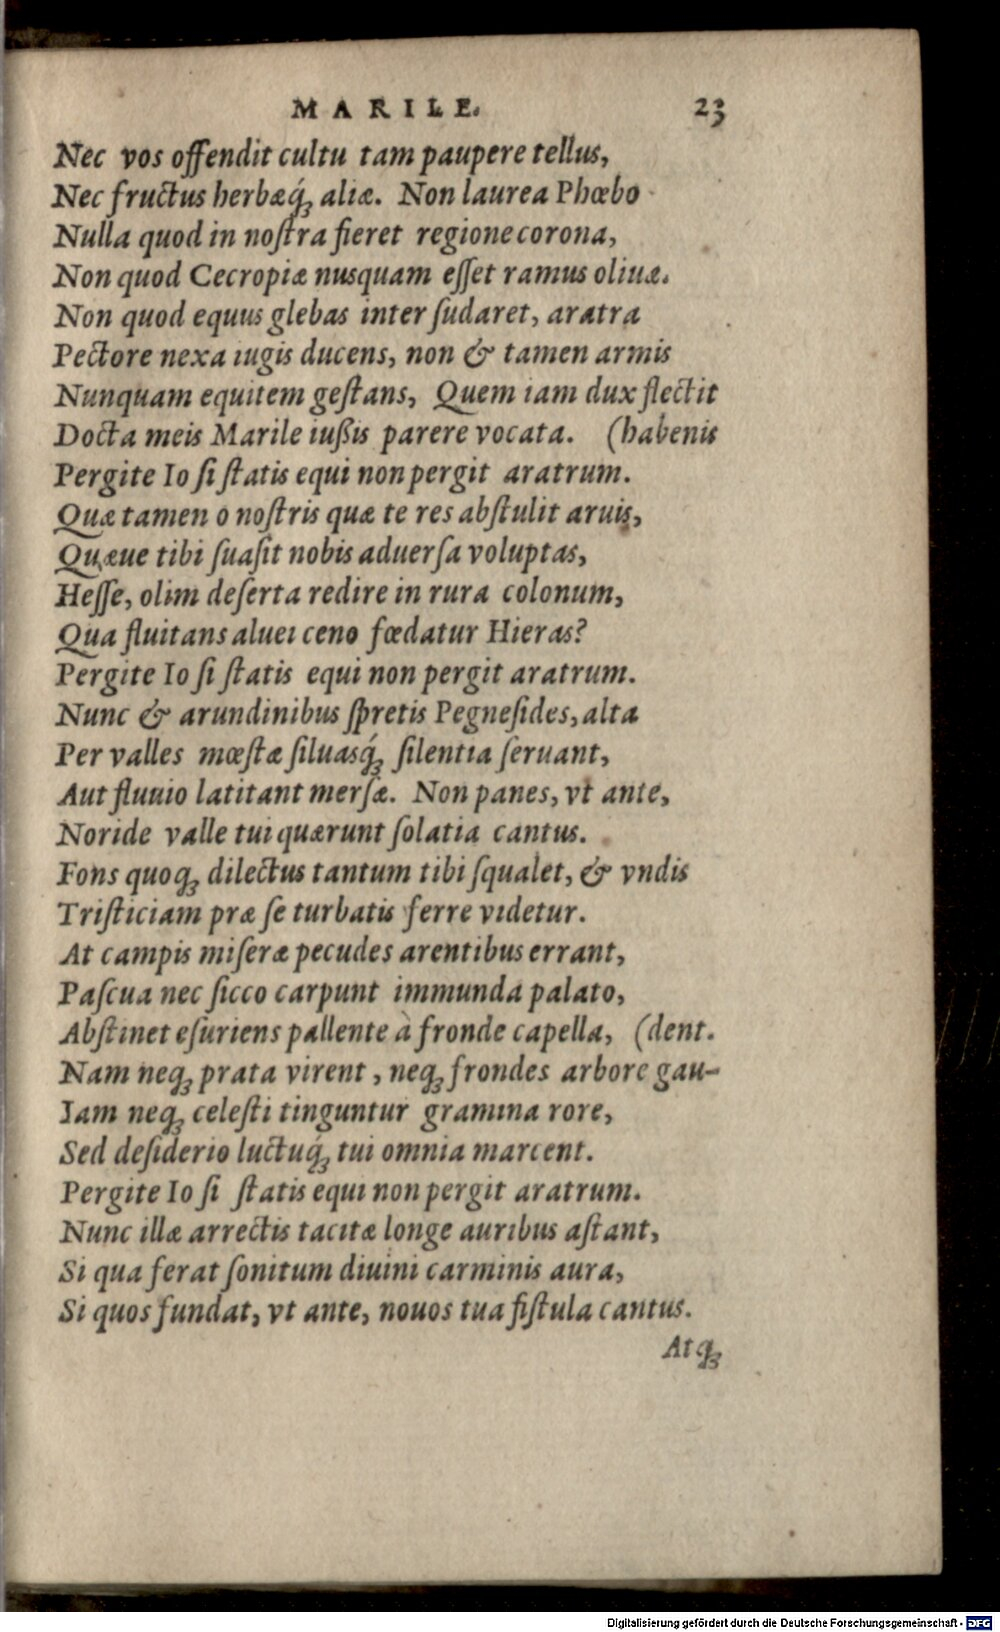 MARILE. 23
Nec vos offendit cultu tam paupere tellus,
Nec fructus herbæq́ꝫ aliæ. Non laurea Phœbo
Nulla quod in noſtra fieret regione corona,
Non quod Cecropiæ nusquam eſſet ramus oliuæ.
Non quod equus glebas inter ſudaret, aratra
Pectore nexa iugis ducens, non & tamen armis
Nunquam equitem geſtans, Quem iam dux flectit
Docta meis Marile iußis parere vocata. (habenis
Pergite Io ſi ſtatis equi non pergit aratrum.
Quæ tamen o noſtris quæ te res abſtulit aruis,
Quæue tibi ſuaſit nobis aduerſa voluptas,
Heſſe, olim deſerta redire in rura colonum,
Qua fluitans aluei ceno fœdatur Hieras?
Pergite Io ſi ſtatis equi non pergit aratrum.
Nunc & arundinibus ſpretis Pegneſides, alta
Per valles mœſtæ ſiluasq́ꝫ ſilentia ſeruant,
Aut fluuio latitant merſæ. Non panes, vt ante,
Noride valle tui quærunt ſolatia cantus.
Fons quoqꝫ dilectus tantum tibi ſqualet, & vndis
Triſticiam præ ſe turbatis ferre videtur.
At campis miſeræ pecudes arentibus errant,
Paſcua nec ſicco carpunt immunda palato,
Abſtinet eſuriens pallente à fronde capella, (dent.
Nam neqꝫ prata virent, neqꝫ frondes arbore gau-
Iam neqꝫ celeſti tinguntur gramina rore,
Sed deſiderio luctuq́ꝫ tui omnia marcent.
Pergite Io ſi ſtatis equi non pergit aratrum.
Nunc illæ arrectis tacitæ longe auribus aſtant,
Si qua ferat ſonitum diuini carminis aura,
Si quos fundat, vt ante, nouos tua fiſtula cantus.
Atqꝫ
Digitalisierung gefördert durch die Deutsche Forschungsgemeinschaft - DFG